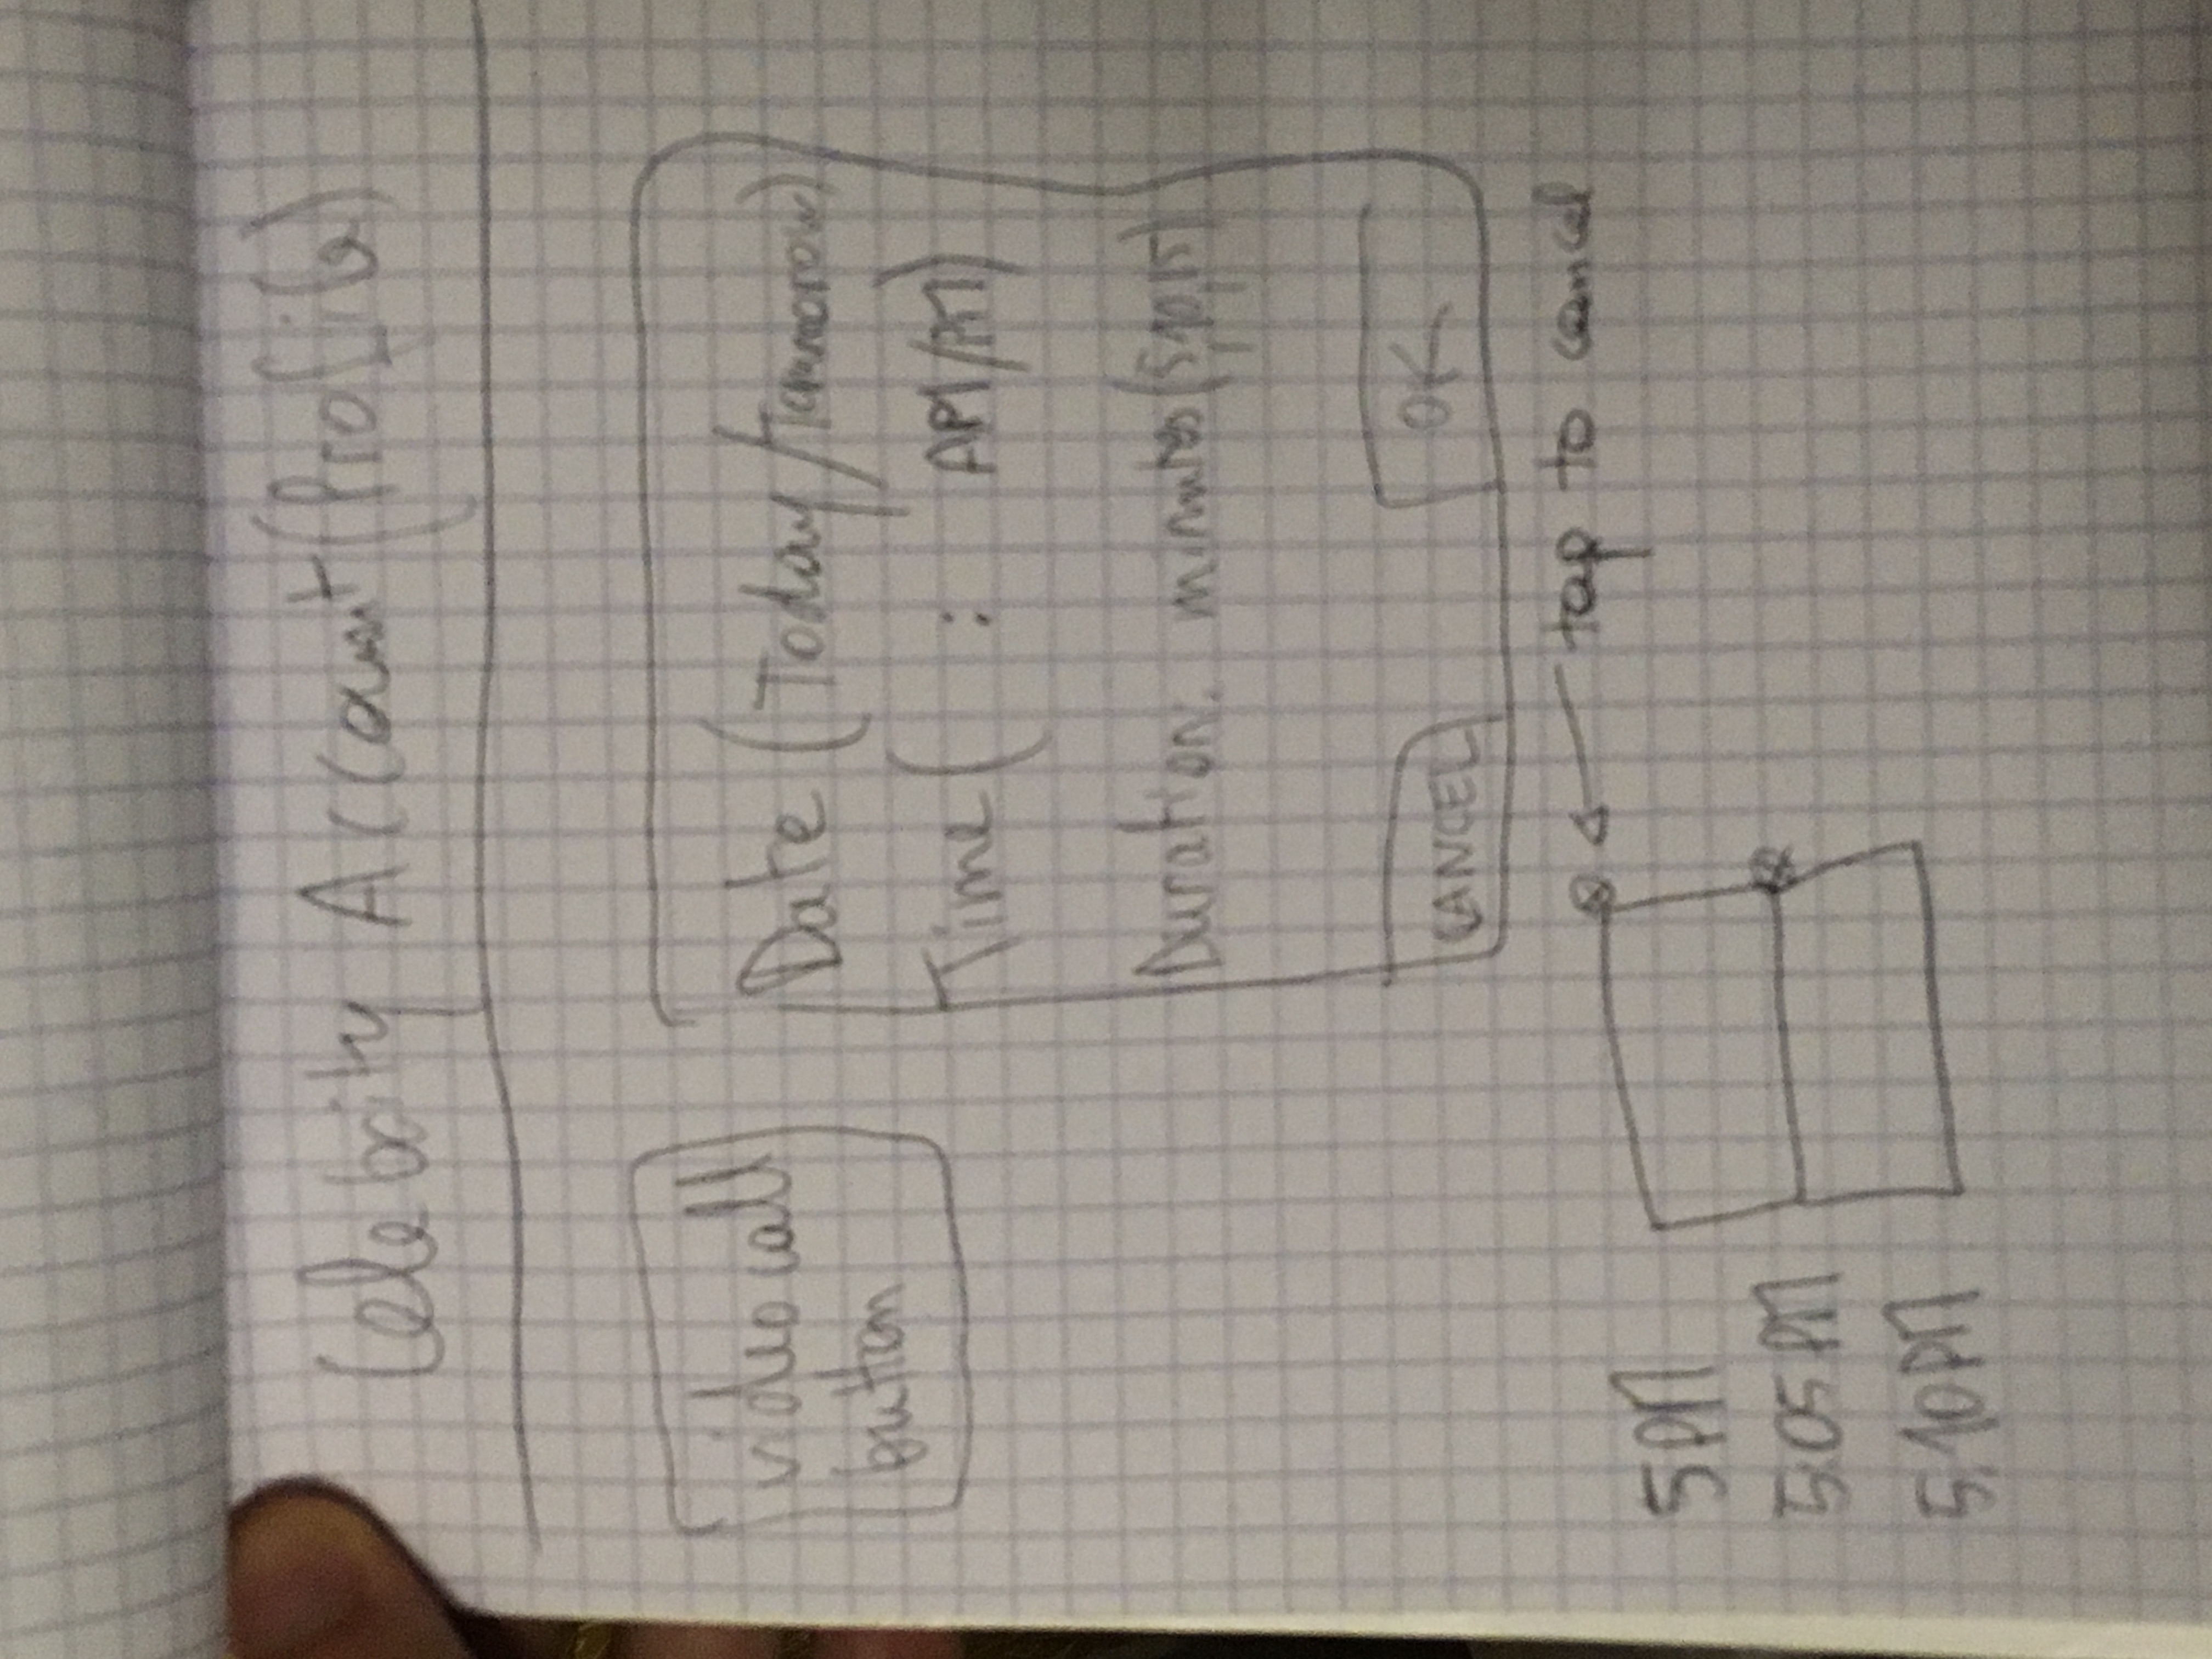 Celebrity Account (Profile)
video call
button
Date (Today/Tommorow)
Time ( : AM/PM)
Duration: minutes (5,10,15)
CANCEL OK
tap to cancel
5 PM
5:05 PM
5:10 PM